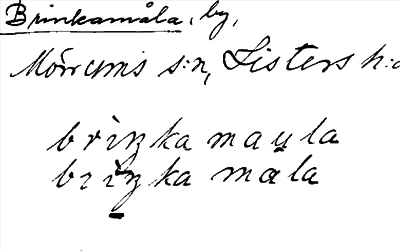 Brinkamåla, by,
Mörrums s:n, Listers h:d
brìŋka mau̯la
brìŋka mala